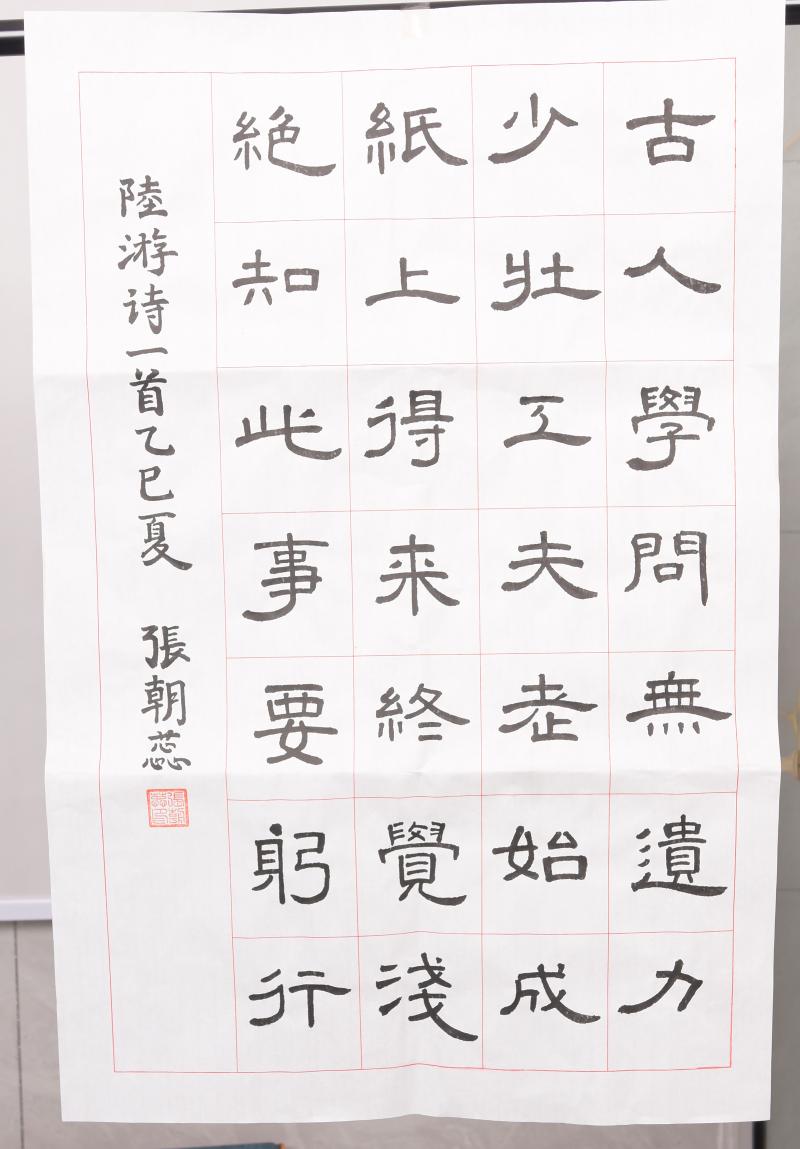 古人學問無遺力
少壯工夫老始成
紙上得来終覺淺
絕知此事要躬行
陸游诗一首乙巳夏 張朝蕊